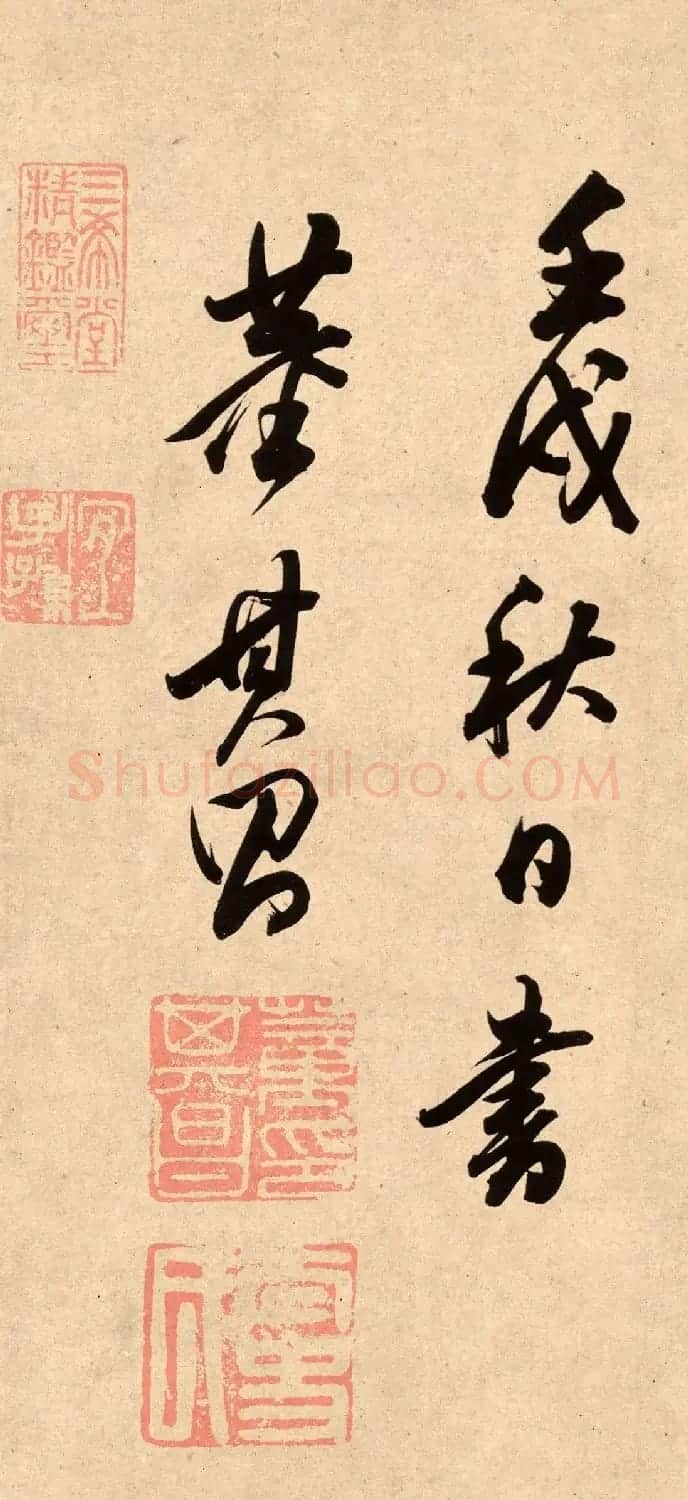 壬戌秋日書
董其昌
董其昌印
三希堂
精鑑璽
宜子
孫
Shufaziliao.COM